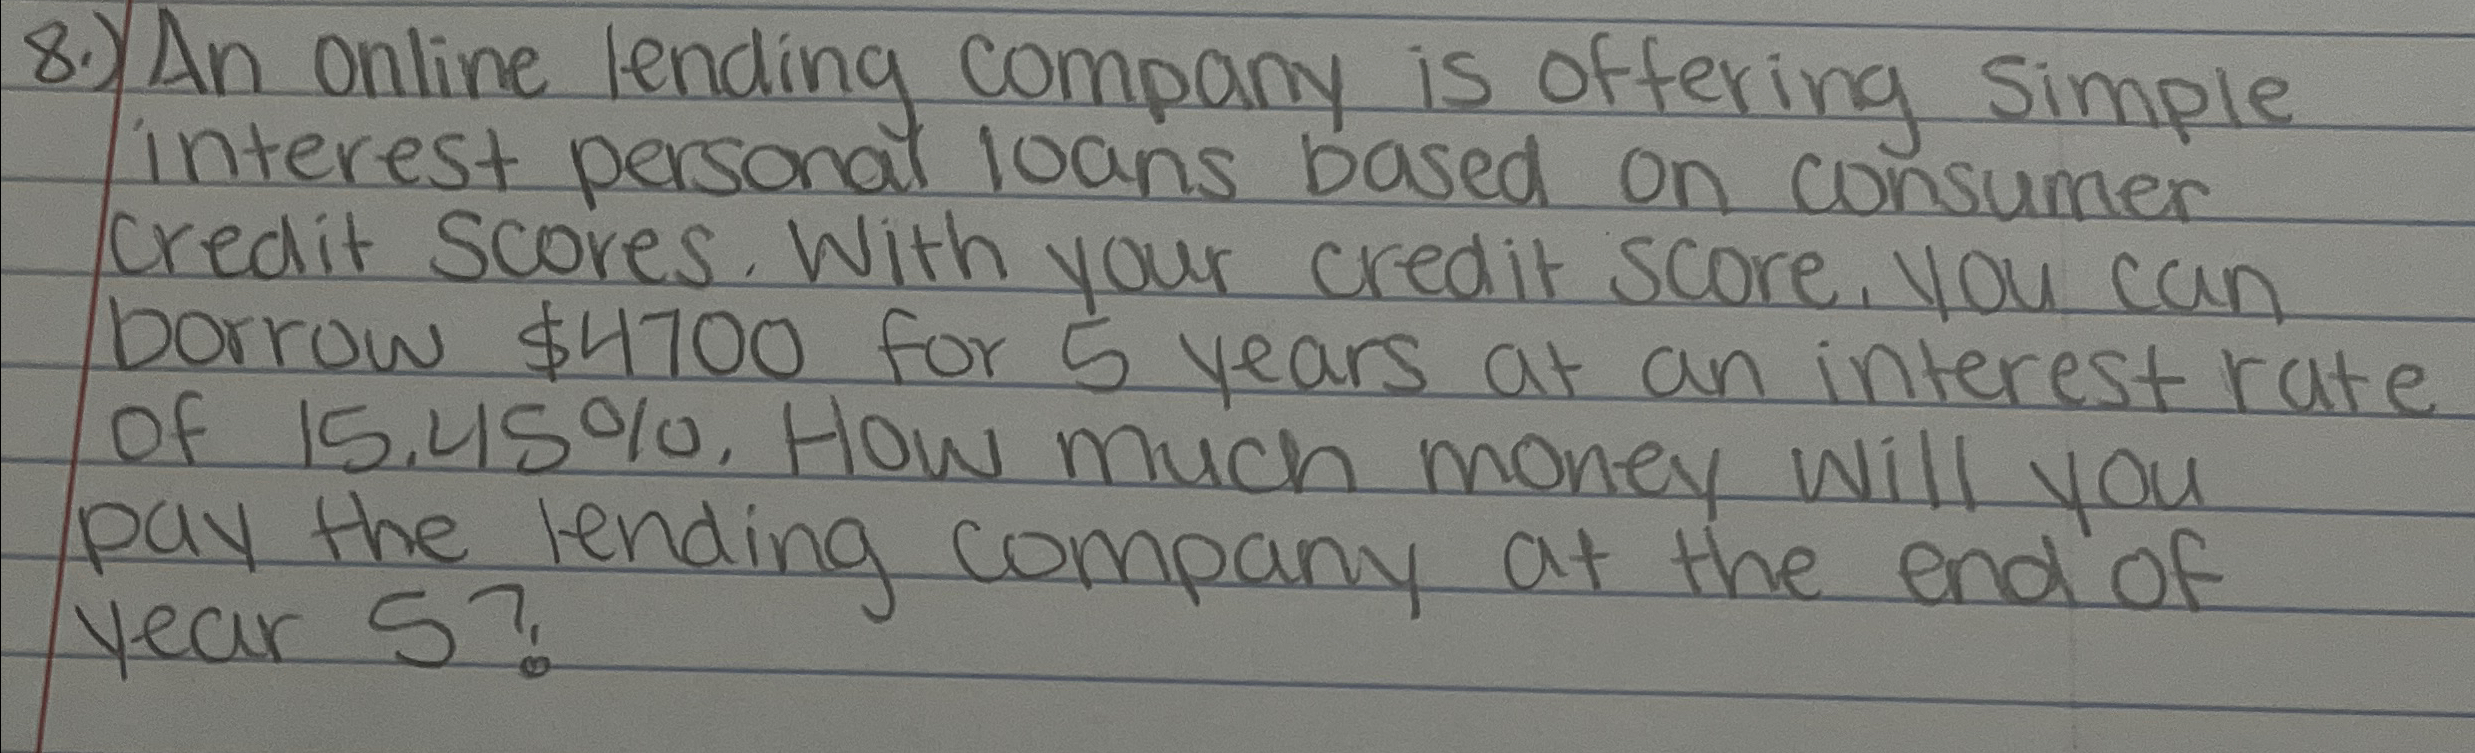 8.) An online lending company is offering simple
interest personal loans based on consumer
credit scores. With your credit score, you can
borrow $4700 for 5 years at an interest rate
of 15.45%. How much money will you
pay the lending company at the end of
year 5?